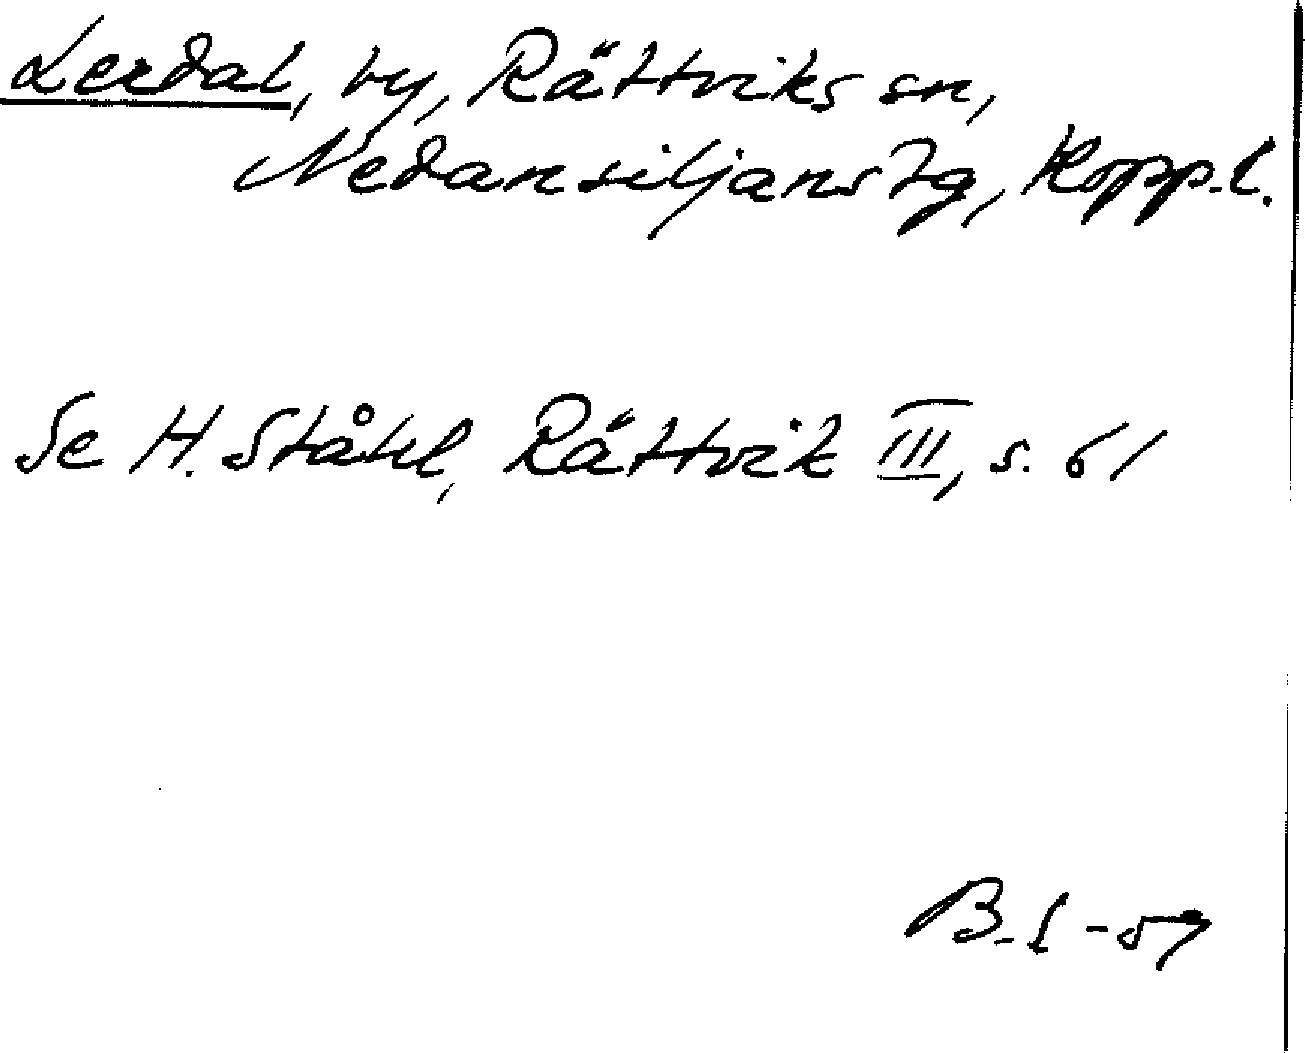 Lerdal, by, Rättviks sn,
Nedansiljans tg, Kopp.l.
Se H. Ståhl, Rättvik III, s. 61
B. L -57